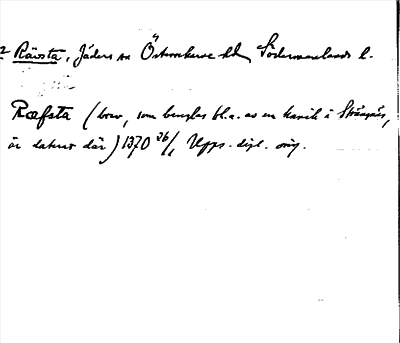 2 Rävsta, Jäders sn Österrekarne hd Södermanlands l.
Ræfsta (brev, som beseglas bl.a. av en kanik i Strängnäs,
är daterat där) 1370 26/1 Upps. dipl. orig.